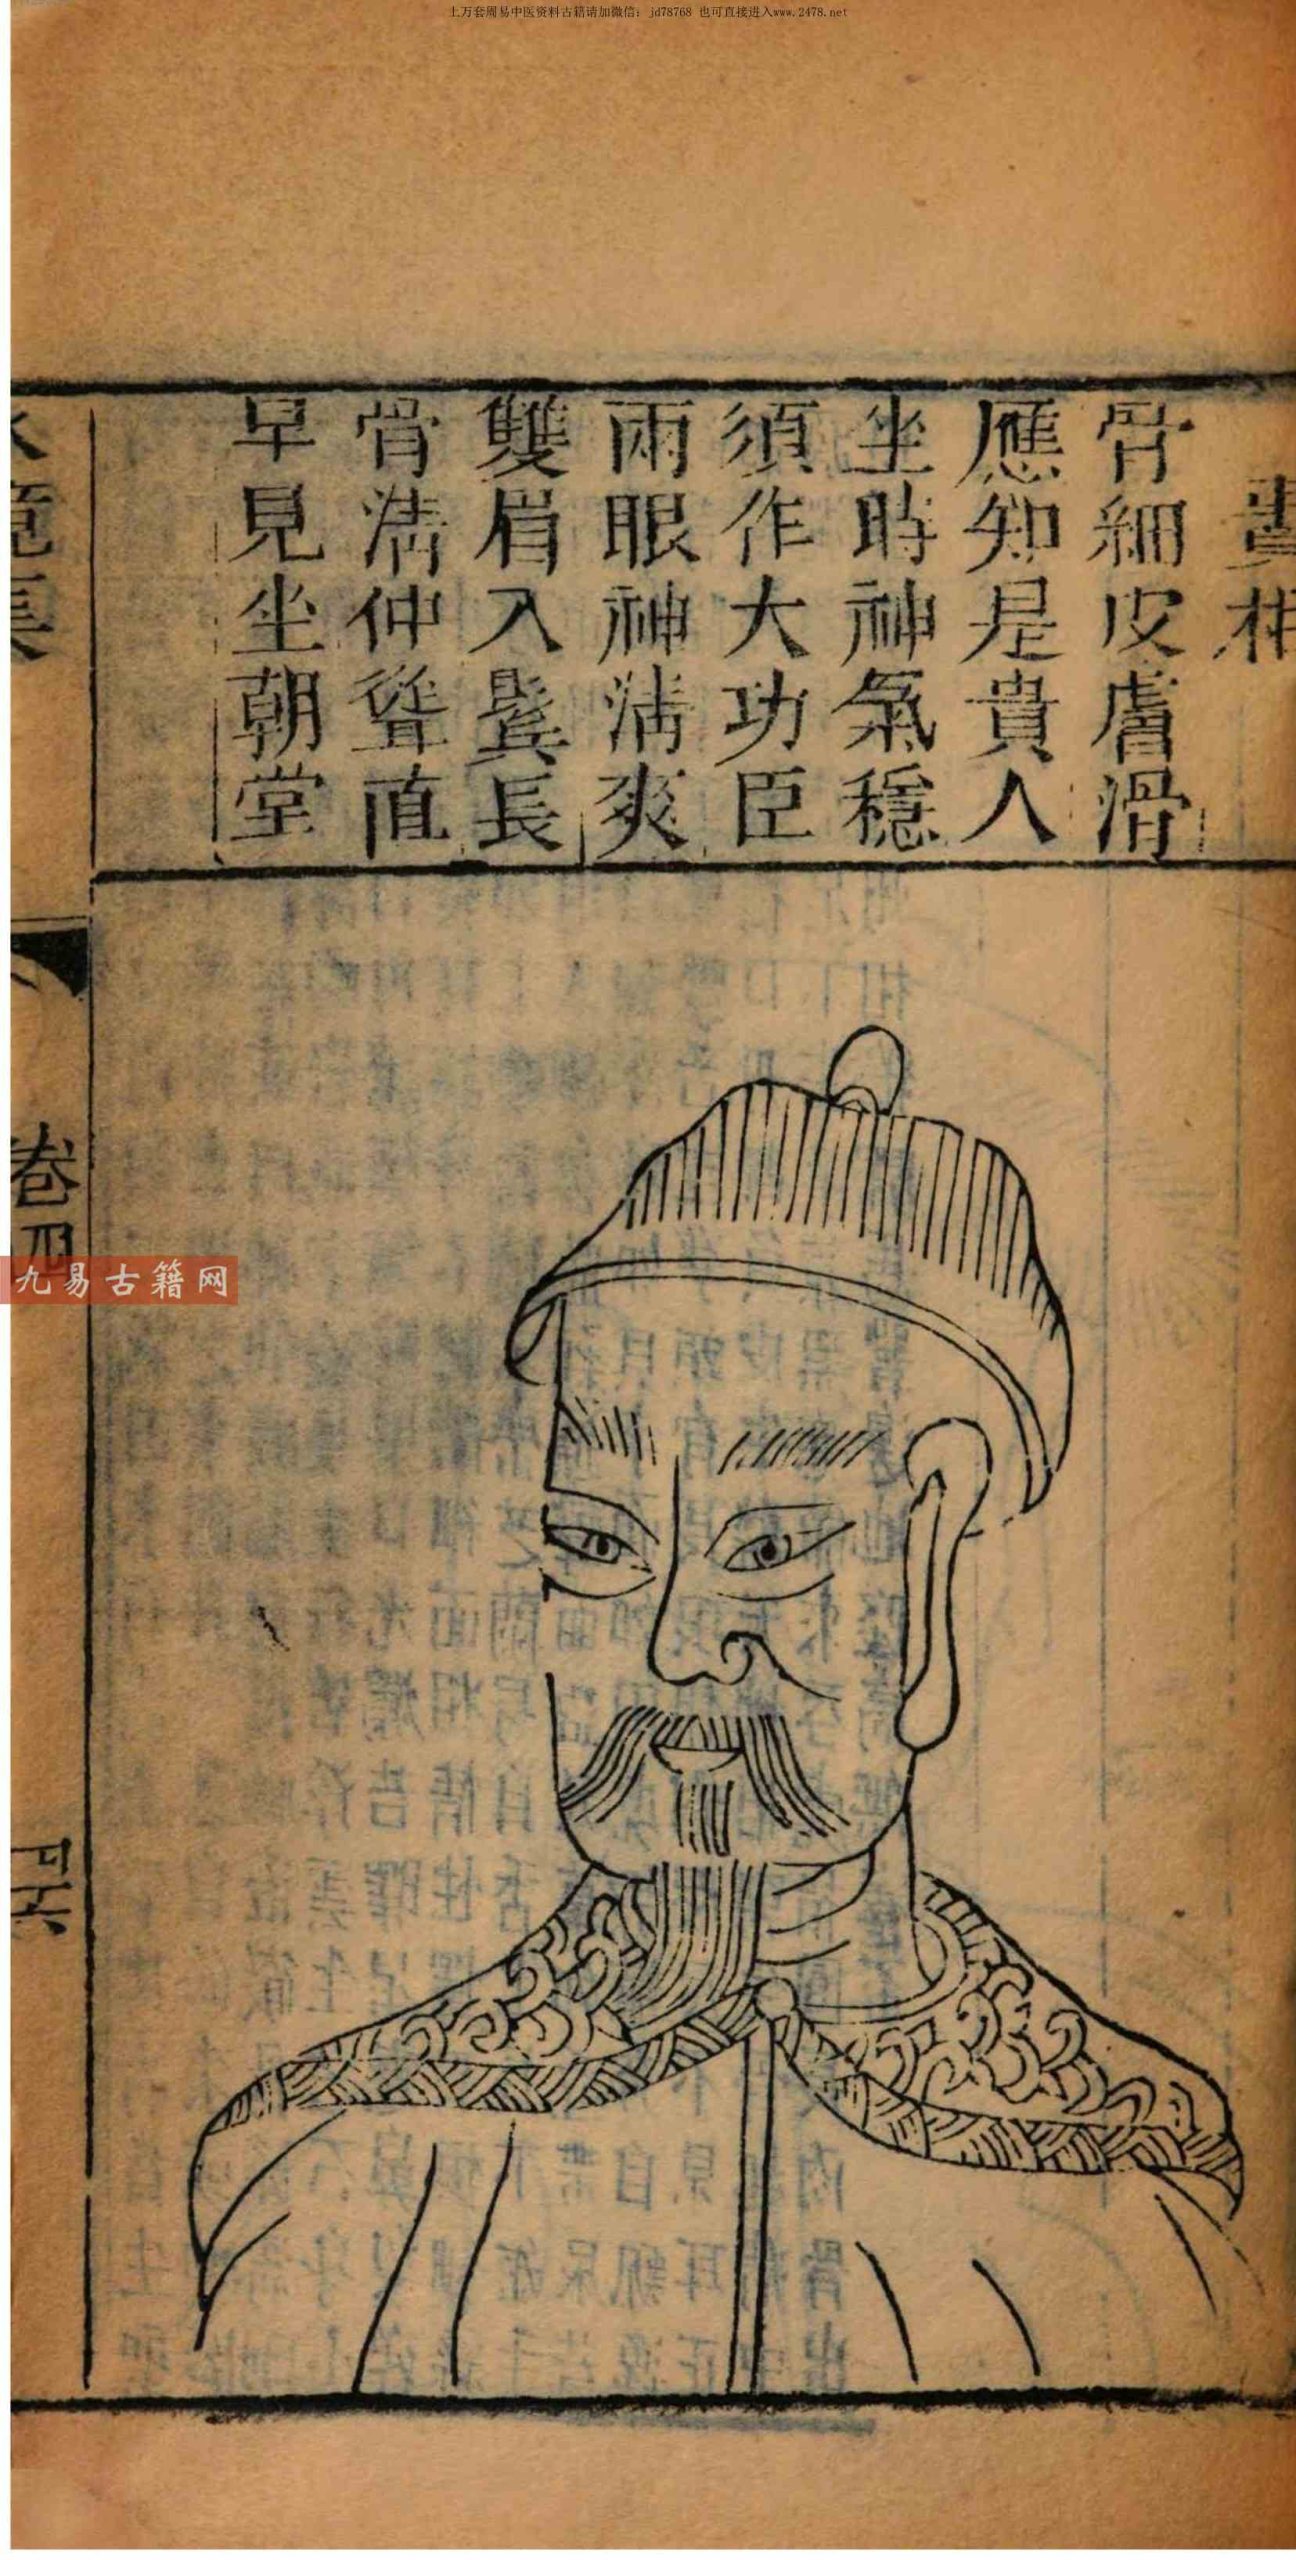 上万套周易中医资料古籍请加微信：jd78768 也可直接进入www.2478.net
骨細皮膚滑
應知是貴人
坐時神氣穩
須作大功臣
兩眼神清爽
雙眉入鬓長
骨清仲聳直
早見坐朝堂
卷四
九易古籍网